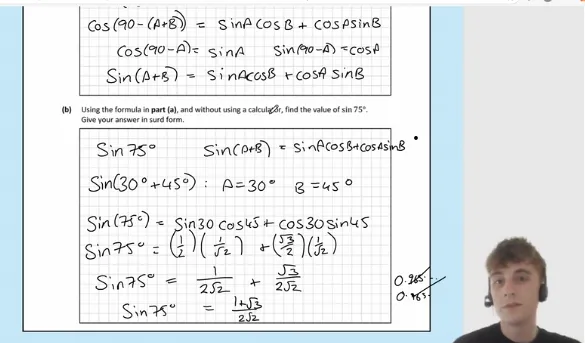 Cos(90-(A+B)) = sinA cosB + cosAsinB
cos(90-A) = sinA sin(90-A) = cosA
Sin(A+B) = sinAcosB + cosA sinB
(b) Using the formula in part (a), and without using a calculator, find the value of sin 75°.
Give your answer in surd form.
Sin 75° Sin(A+B) = sinAcosB+cosAsinB
Sin(30°+45°) : A=30° B=45°
Sin(75°) = Sin30 cos45 + cos30 sin45
Sin75° = (1/2)(1/√2) + (√3/2)(1/√2)
Sin75° = 1/2√2 + √3/2√2
Sin75° = 1+√3/2√2